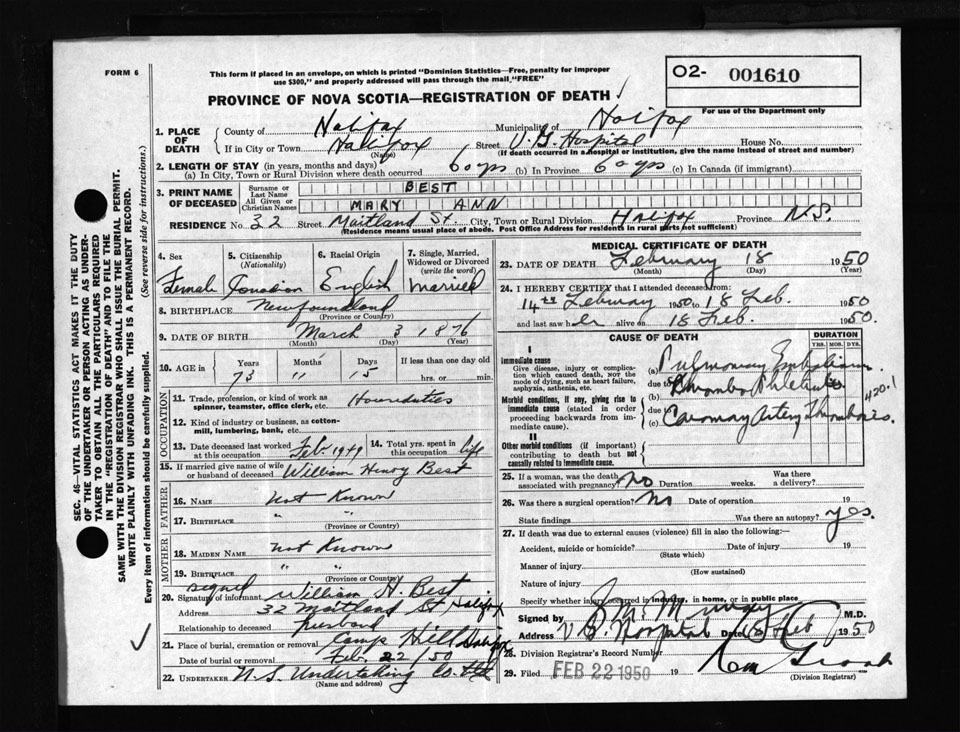 FORM 6
This form if placed in an envelope, on which is printed "Dominion Statistics—Free, penalty for improper
use $300," and properly addressed will pass through the mail "FREE"
O2- 001610
For use of the Department only
PROVINCE OF NOVA SCOTIA—REGISTRATION OF DEATH
1. PLACE OF DEATH
County of Halifax Municipality of Halifax
If in City or Town Halifax Street V. G. Hospital House No.
(Name) (If death occurred in a hospital or institution, give the name instead of street and number)
2. LENGTH OF STAY (in years, months and days)
(a) In City, Town or Rural Division where death occurred 60 yrs (b) In Province 60 yrs (c) In Canada (if immigrant)
3. PRINT NAME OF DECEASED
Surname or Last Name BEST
All Given or Christian Names MARY ANN
RESIDENCE No. 32 Street Maitland St. City, Town or Rural Division Halifax Province N.S.
(Residence means usual place of abode. Post Office Address for residents in rural parts not sufficient)
4. Sex Female
5. Citizenship (Nationality) Canadian
6. Racial Origin English
7. Single, Married, Widowed or Divorced (write the word) Married
8. BIRTHPLACE Newfoundland
(Province or Country)
9. DATE OF BIRTH March 3 1876
(Month) (Day) (Year)
10. AGE in Years Months Days If less than one day old
73 11 15 hrs. or min.
OCCUPATION
11. Trade, profession, or kind of work as spinner, teamster, office clerk, etc.
12. Kind of industry or business, as cotton-mill, lumbering, bank, etc.
13. Date deceased last worked at this occupation Feb 1949
14. Total yrs. spent in this occupation life
15. If married give name of wife or husband of deceased William Henry Best
FATHER
16. NAME Not Known
17. BIRTHPLACE " "
(Province or Country)
MOTHER
18. MAIDEN NAME not Known
19. BIRTHPLACE " "
(Province or Country)
signed
20. Signature of informant William H. Best
Address 32 Maitland St Halifax
Relationship to deceased husband
21. Place of burial, cremation or removal Camp Hill Halifax
Date of burial or removal Feb. 22/50
22. UNDERTAKER N.S. Undertaking Co. Ltd
(Name and address)
MEDICAL CERTIFICATE OF DEATH
23. DATE OF DEATH February 18 1950
(Month) (Day) (Year)
24. I HEREBY CERTIFY that I attended deceased from:
14th February 1950 to 18 Feb. 1950
and last saw her alive on 18 Feb. 1950.
CAUSE OF DEATH
DURATION
YRS. MOS. DYS.
I
Immediate cause
Give disease, injury or complication which caused death, not the mode of dying, such as heart failure, asphyxia, asthenia, etc.
(a) Pulmonary Embolism
due to
Morbid conditions, if any, giving rise to immediate cause (stated in order proceeding backwards from immediate cause).
(b) Thrombo Phlebitis
due to
(c) Coronary Artery Thrombosis.
420.1
II
Other morbid conditions (if important) contributing to death but not causally related to immediate cause.
25. If a woman, was the death associated with pregnancy? No Duration weeks. Was there a delivery?
26. Was there a surgical operation? No Date of operation 19
State findings Was there an autopsy? yes.
27. If death was due to external causes (violence) fill in also the following:—
Accident, suicide or homicide? Date of injury 19
(State which)
Manner of injury
(How sustained)
Nature of injury
Specify whether injury occurred in industry, in home, or in public place
Signed by Murray M.D.
Address V. G. Hospital Date Feb 1950
28. Division Registrar's Record Number
29. Filed FEB 22 1950 19
(Division Registrar)
SEC. 46—VITAL STATISTICS ACT MAKES IT THE DUTY
OF THE UNDERTAKER OR PERSON ACTING AS UNDER-
TAKER TO OBTAIN ALL THE PARTICULARS REQUIRED
IN THE "REGISTRATION OF DEATH" AND TO FILE THE
SAME WITH THE DIVISION REGISTRAR WHO SHALL ISSUE THE BURIAL PERMIT.
WRITE PLAINLY WITH UNFADING INK. THIS IS A PERMANENT RECORD.
Every item of information should be carefully supplied. (See reverse side for instructions.)